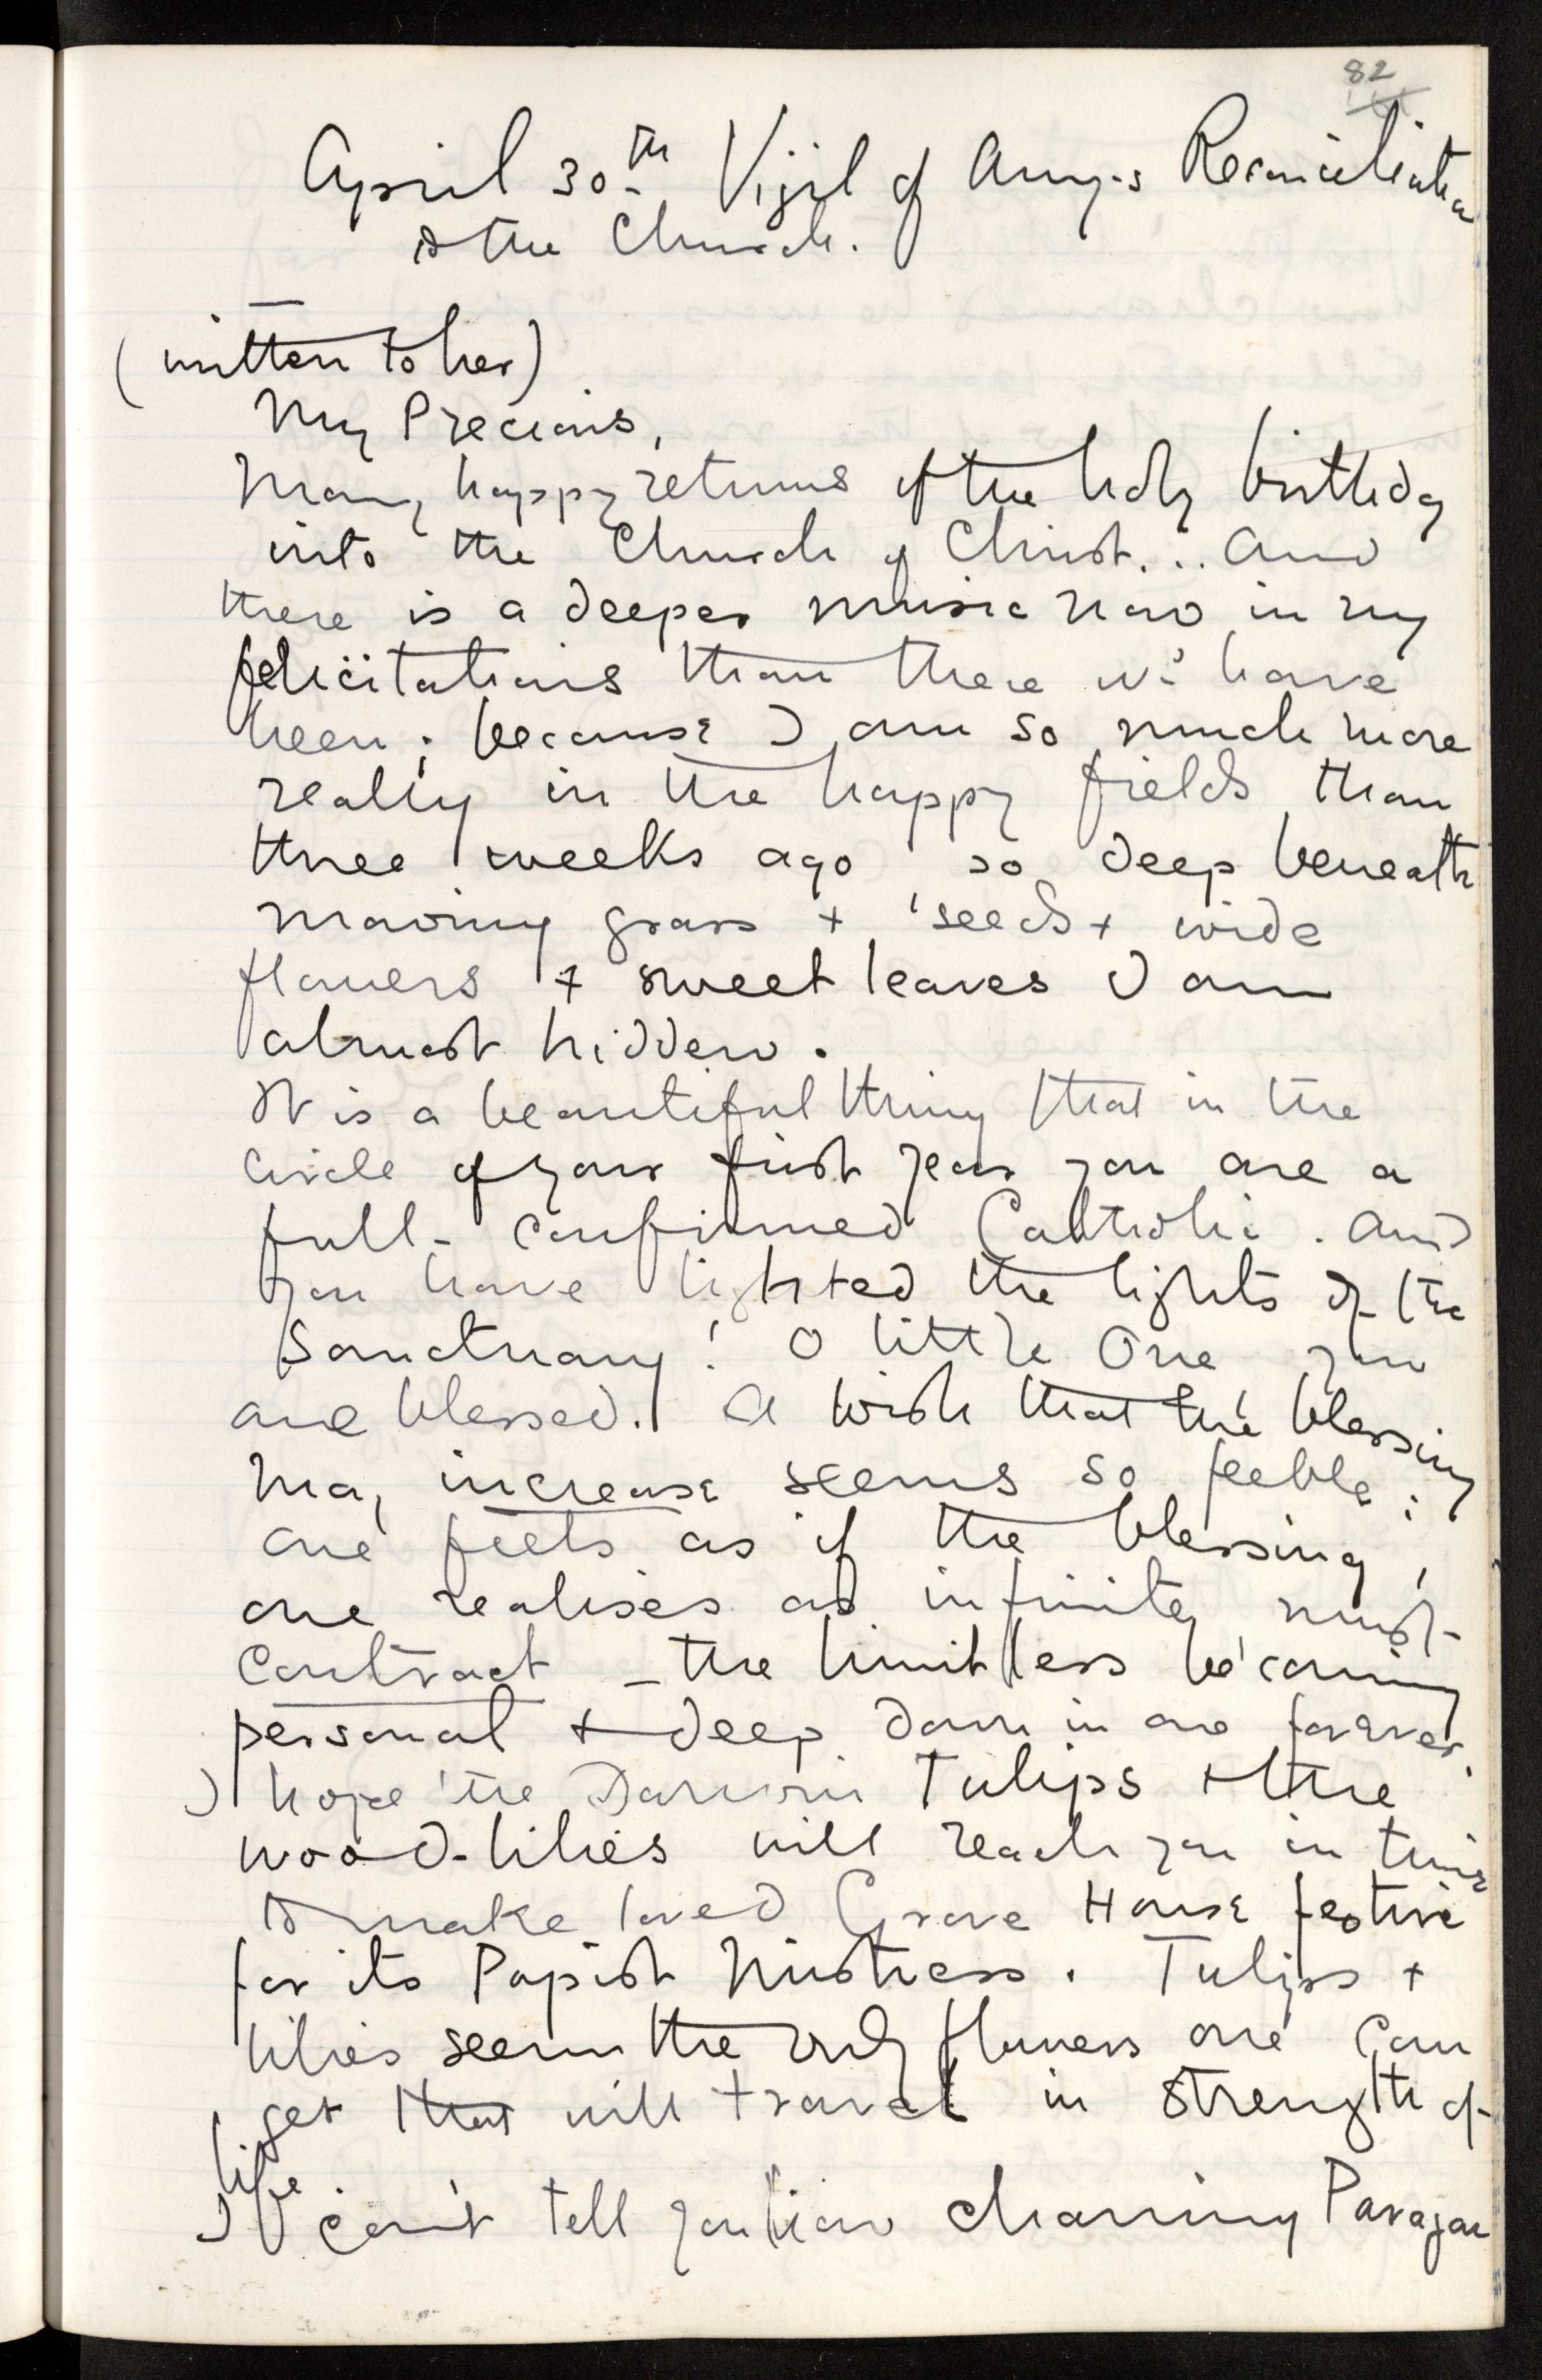 82
April 30th Vigil of Amy's Reconciliation
to the Church.
(written to her)
My Precious,
Many happy returns of the holy birthday
into the Church of Christ... And
there is a deeper music now in my
felicitations than there wd have
been; because I am so much more
really in the happy fields than
three weeks ago so deep beneath
moving grass + seeds + wide
flowers + sweet leaves I am
almost hidden.
It is a beautiful thing that in the
circle of your first year you are a
full-confirmed Catholic. And
you have lighted the lights of the
Sanctuary! O little One you
are blessed. A wish that the blessing
may increase seems so feeble:
one feels as if the blessing,
one realises as infinite, must
contract – the limitless becoming
personal + deep down in one forever.
I hope the Darwin Tulips + the
wood-lilies will reach you in time
to make loved Grove House festive
for its Papist Mistress. Tulips +
lilies seem the only flowers one can
get that will travel in strength of
life
I can't tell you how charming Paragon